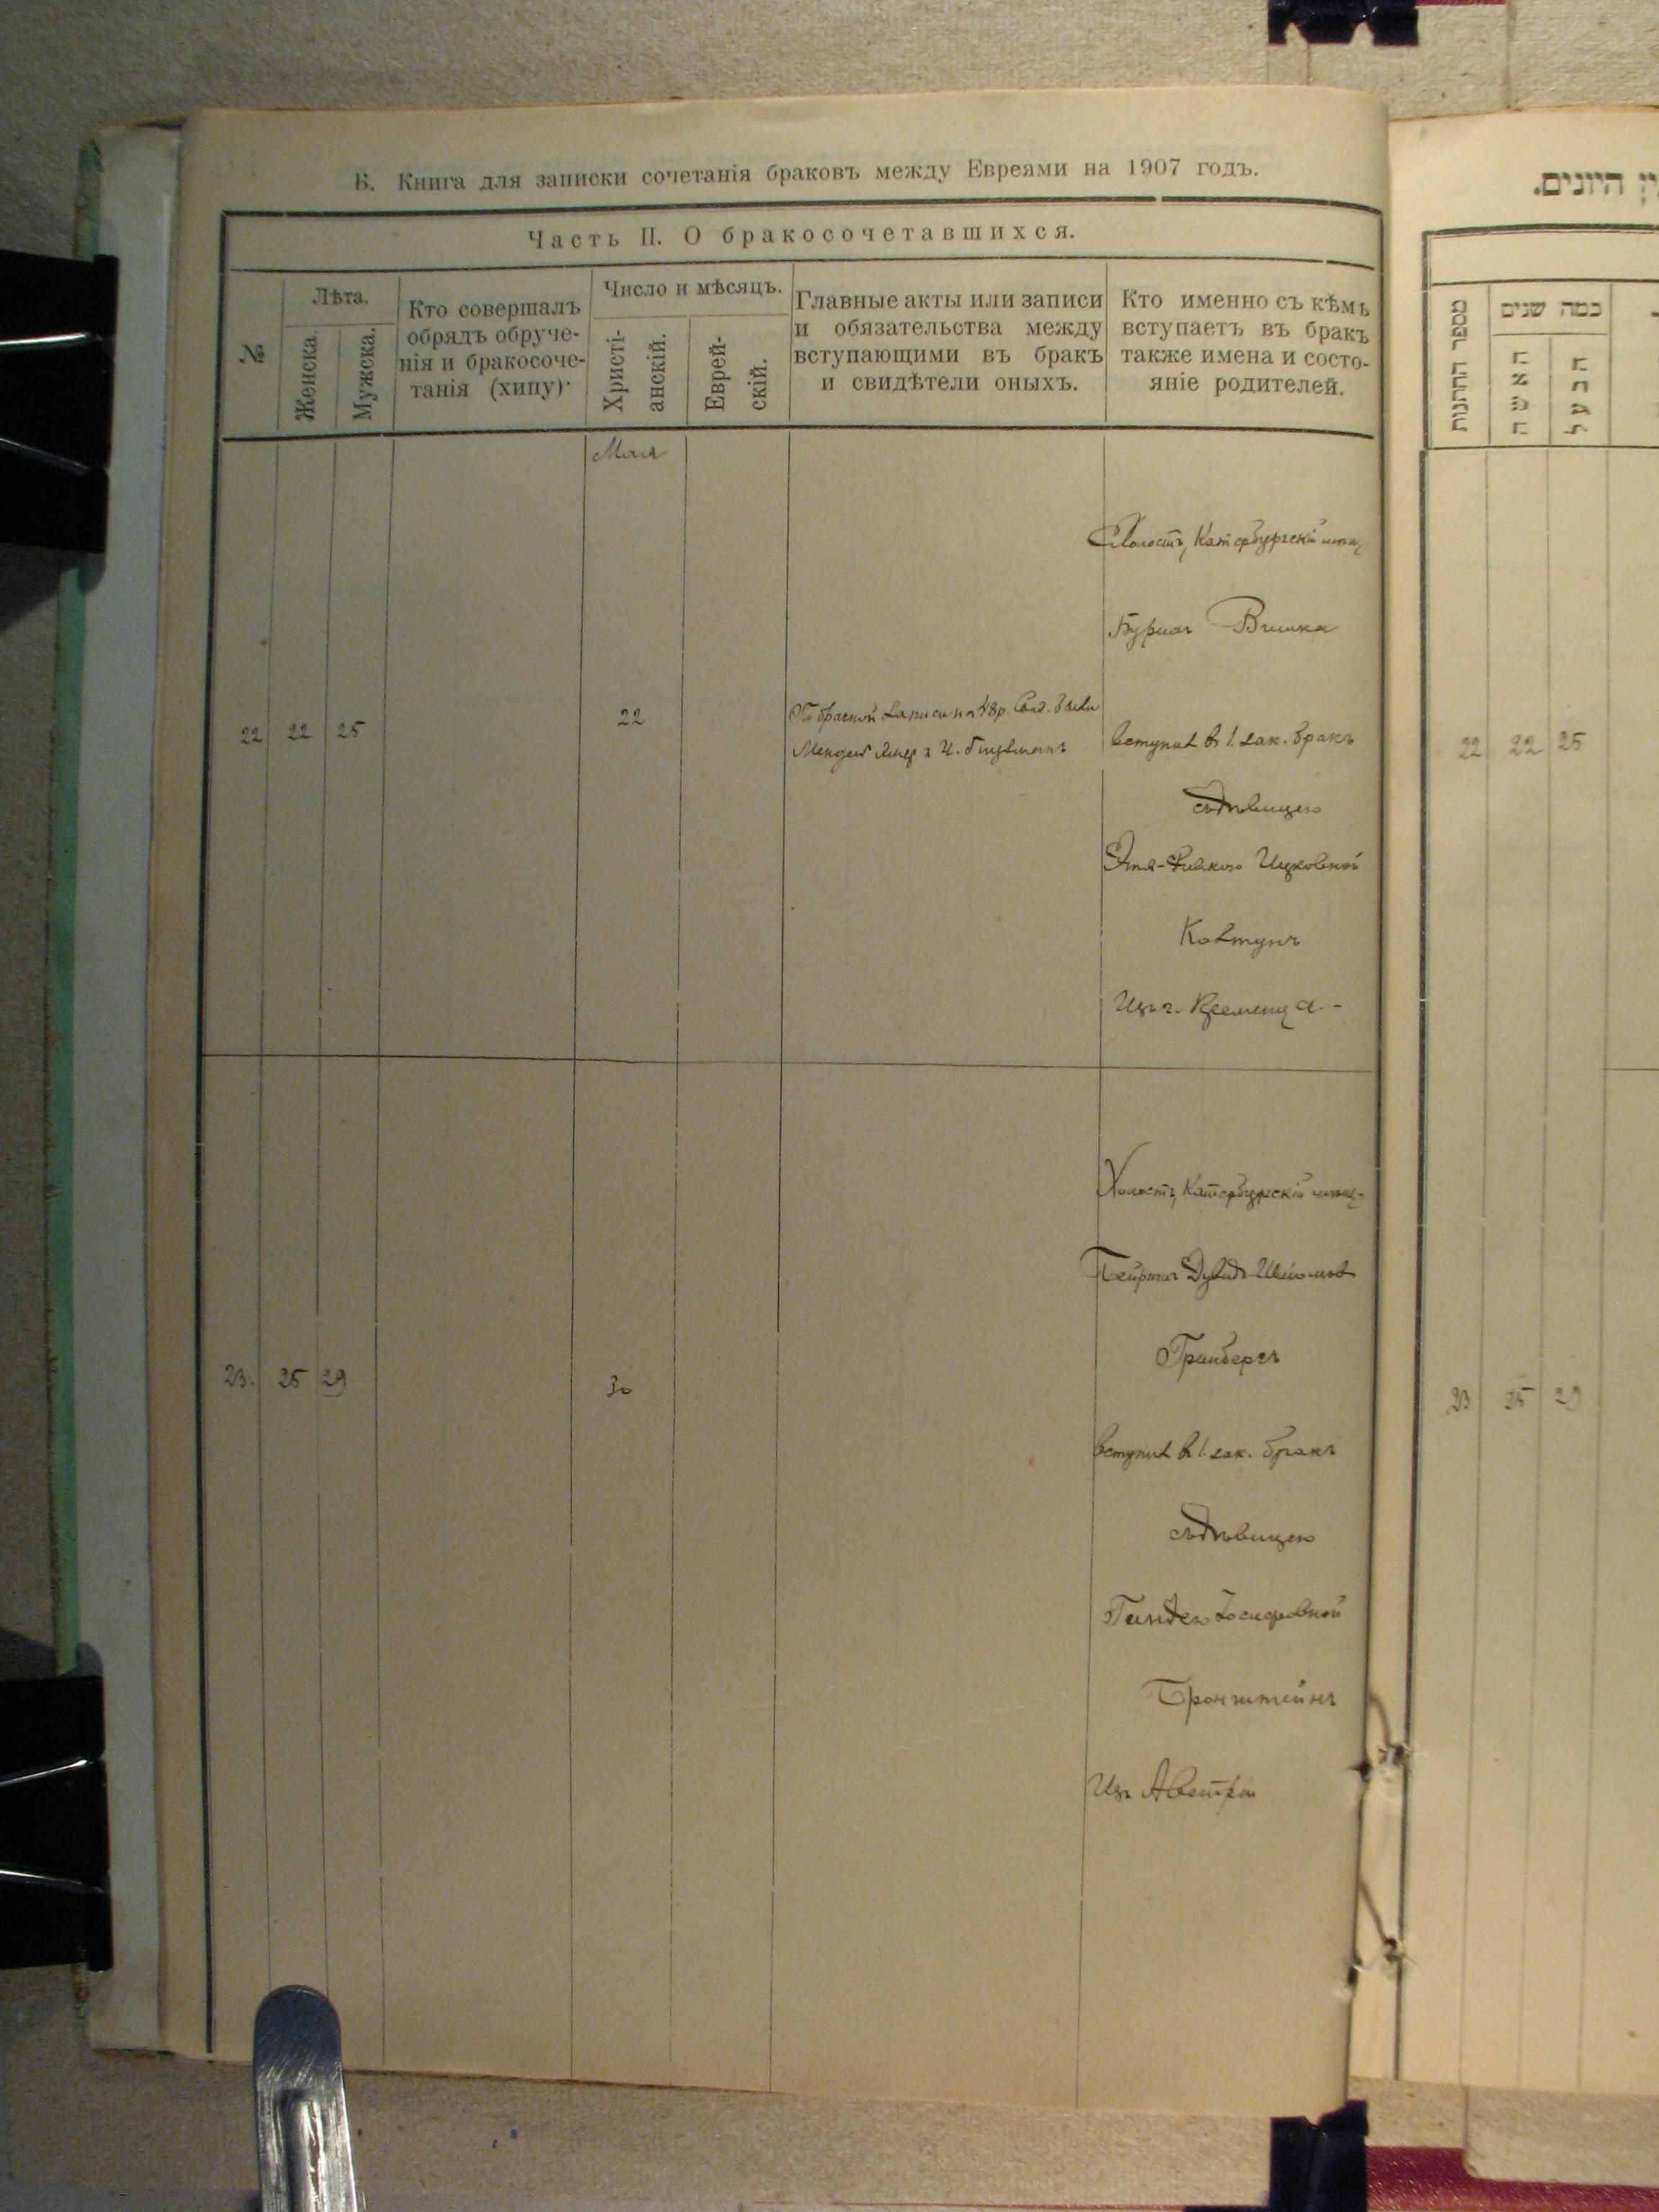 Б. Книга для записки сочетанія браковъ между Евреями на 1907 годъ.
Часть II. О бракосочетавшихся.
№
Лѣта.
Женска.
Мужска.
Кто совершалъ
обрядъ обруче-
нія и бракосоче-
танія (хипу).
Число и мѣсяцъ.
Христі-
анскій.
Еврей-
скій.
Главные акты или записи
и обязательства между
вступающими въ бракъ
и свидѣтели оныхъ.
Кто именно съ кѣмъ
вступаетъ въ бракъ
также имена и состо-
яніе родителей.
Мая
22 22 25
22
По брачной записи на 48 р. Свид. были
Холостъ, Катербургскій мѣщ.
вступил в 1. зак. бракъ
съ дѣвицею
Ицковной
Ковтунъ
Изъ г. Кременца. -
23. 25 29
30
Холостъ, Катербургскій мѣщ.
Дувидъ
Гринбергъ
вступил в 1. зак. бракъ
съ дѣвицею
Іосифовной
Бронштейнъ
Изъ Австріи
ין היונים.
מספר החתנות
כמה שנים
האשה
הבעל
22 22 25
23 25 29